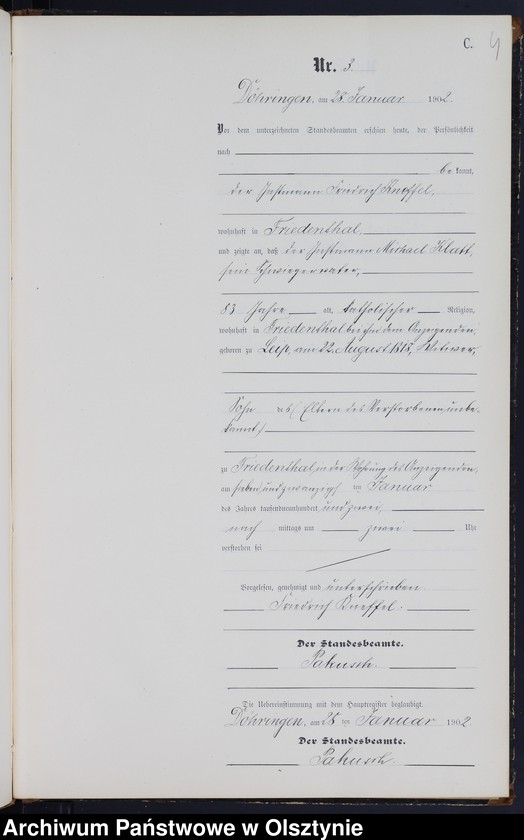 C. 4
Nr. 3.
Döhringen, am 28. Januar 1902.
Vor dem unterzeichneten Standesbeamten erschien heute, der Persönlichkeit
nach
be kannt,
der Instmann Friedrich Kneffel,
wohnhaft in Friedenthal,
und zeigte an, daß der Instmann Michael Klatt,
sein Schwiegervater,
83 Jahre alt, katholischer Religion,
wohnhaft in Friedenthal bei dem Anzeigenden,
geboren zu am 22. August 1818, Witwer,
Sohn (Eltern des Verstorbenen unbe-
kannt)
zu Friedenthal, in der Wohnung des Anzeigenden,
am sieben und zwanzigsten Januar
des Jahres tausendneunhundert und zwei,
nach mittags um zwei Uhr
verstorben sei
Vorgelesen, genehmigt und unterschrieben
Friedrich Kneffel.
Der Standesbeamte.
Pakusch.
Die Uebereinstimmung mit dem Hauptregister beglaubigt.
Döhringen, am 28 ten Januar 1902.
Der Standesbeamte.
Pakusch.
Archiwum Państwowe w Olsztynie